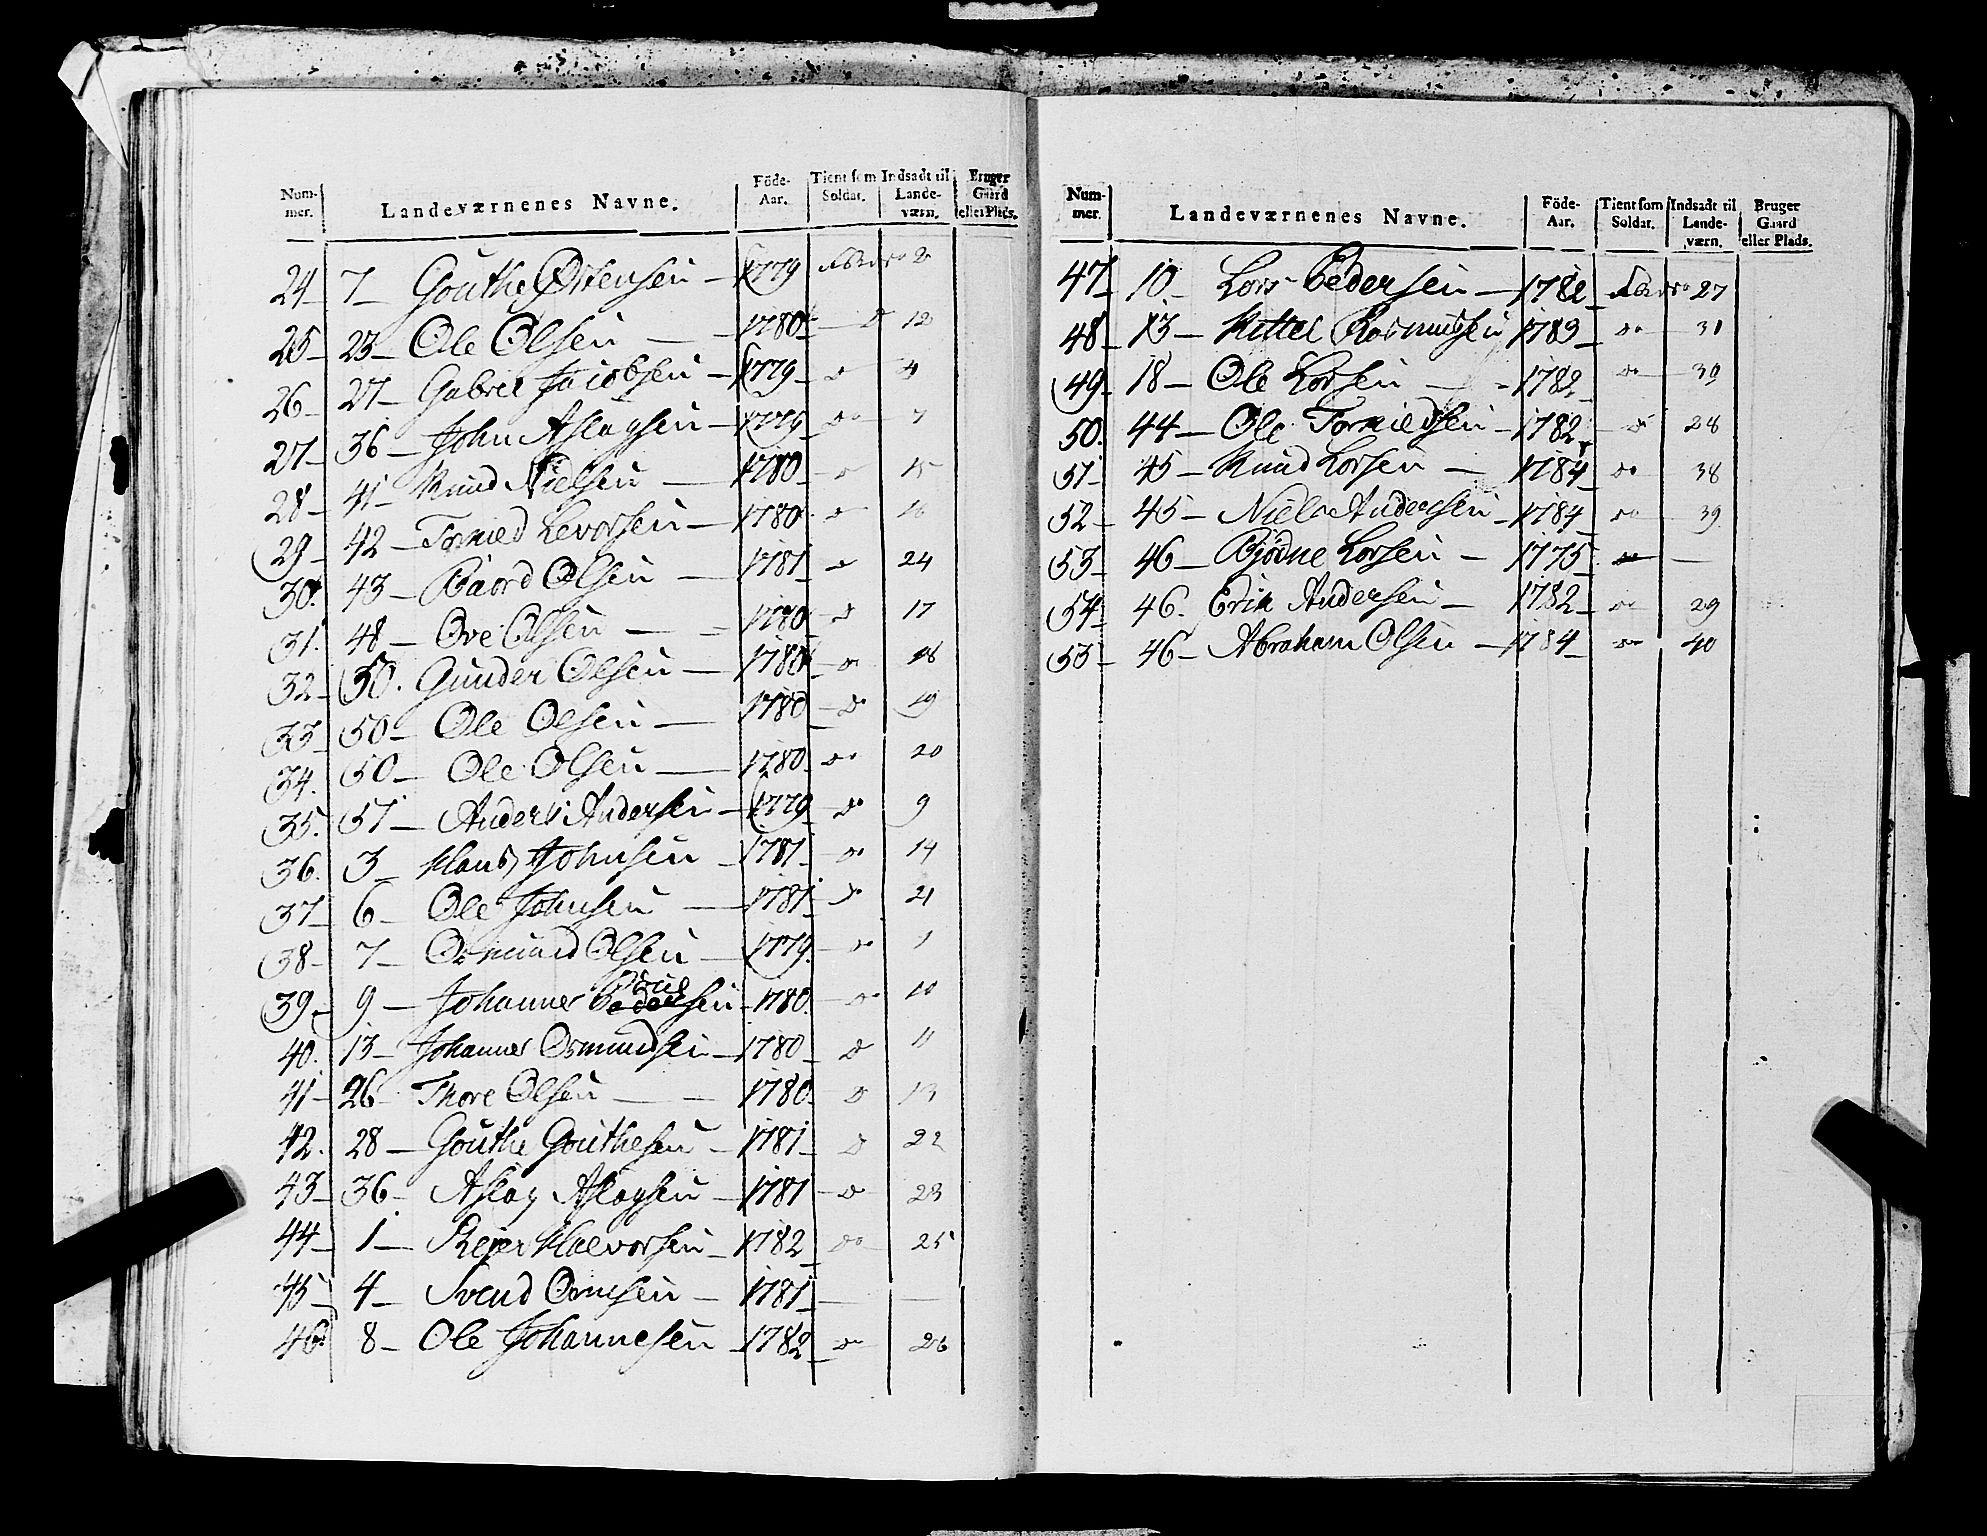 Num-mer. Landeværnenes Navne. Föde-Aar. Tient som Soldat. Indsadt til Lande-værn. Bruger Gaard eller Plads.
24 7 Gouthe Østensen 1779 2
25 23 Ole Olsen 1780 D 12
26 27 Gabriel Jacobsen 1779 D 4
27 36 John Aslagsen 1779 Do 7
28 41 Knud Nielsen 1780 D 15
29 42 Tormed Levorsen 1780 D 16
30. 43 Baard Olsen 1781 D 24
31. 48 Ove Olsen 1780 D 17
32 50. Gunder Olsen 1780 Do 18
33 50 Ole Olsen 1780 Do 19
34. 50 Ole Olsen 1780 Do 20
35. 51 Anders Andersen 1779 Do 9
36. 3 Hans Johnsen 1781 Do 14
37 6 Ole Johnsen 1781 D 21
38 7 Osmund Olsen 1779. Do 1
39 9 Johannes Pedersen 1780. Do 10
40. 13 Johannes Osmundsen 1780 D 11
41 26 Thore Olsen 1780 D 13
42. 28 Gouthe Gouthesen 1781 D 22
43 36 Aslag Aslagsen 1781 D 23
44 1 Reier Halvorsen 1782 Do 25
45 4 Svend Ormsen 1781 — —
46 8 Ole Johannesen 1782 Do 26
Num-mer. Landeværnenes Navne. Föde-Aar. Tient som Soldat. Indsadt til Lande-værn. Bruger Gaard eller Plads.
47 10 Lars Pedersen 1782 27
48 13 Kittel Rasmussen 1783 Do 31
49 18 Ole Larsen 1782 Do 30
50. 44 Ole Tormedsen 1782 D 28
51 45 Knud Larsen 1784 Do 38
52 45 Niels Andersen 1784 Do 39
53 46 Biødne Larsen 1775 Do —
54 46. Erik Andersen 1782 Do 29
55 46 Abraham Olsen 1784 Do 40